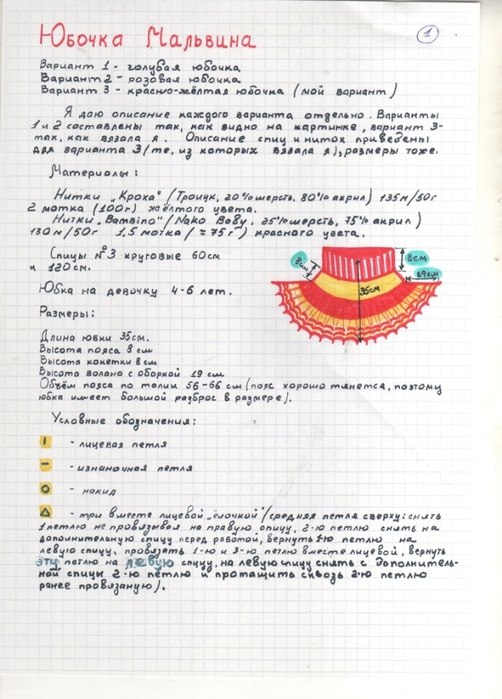 Юбочка Мальвина
1
Вариант 1 - голубая юбочка
Вариант 2 - розовая юбочка
Вариант 3 - красно-жёлтая юбочка (мой вариант)
Я даю описание каждого варианта отдельно. Варианты
1 и 2 составлены так, как видно на картинке, вариант 3-
так, как взяла я. Описание спиц и ниток приведены
для варианта 3 (те, из которых вязала я), размеры тоже.
Материалы:
Нитки „Кроха" (Троицк, 20% шерсть, 80% акрил) 135м/50г
2 мотка (100г) жёлтого цвета.
Нитки „Bambino" (Nako Baby, 25% шерсть, 75% акрил)
130м/50г 1,5 мотка (≈75г) красного цвета.
Спицы №3 круговые 60см
и 120см.
8см
8см
35см
19см
Юбка на девочку 4-6 лет.
Размеры:
Длина юбки 35см.
Высота пояса 8см
Высота кокетки 8см
Высота волана с оборкой 19см
Объём пояса по талии 56-66см (пояс хорошо тянется, поэтому
юбка имеет большой разброс в размере).
Условные обозначения:
- лицевая петля
- изнаночная петля
- накид
- три вместе лицевой „ёлочкой" (средняя петля сверху: снять
1 петлю не провязывая на правую спицу, 2-ю петлю снять на
дополнительную спицу перед работой, вернуть 1ю петлю на
левую спицу, провязать 1-ю и 3-ю петлю вместе лицевой, вернуть
эту петлю на левую спицу, на левую спицу снять с дополнитель-
ной спицы 2-ю петлю и протащить сквозь 2-ю петлю
ранее провязаную).